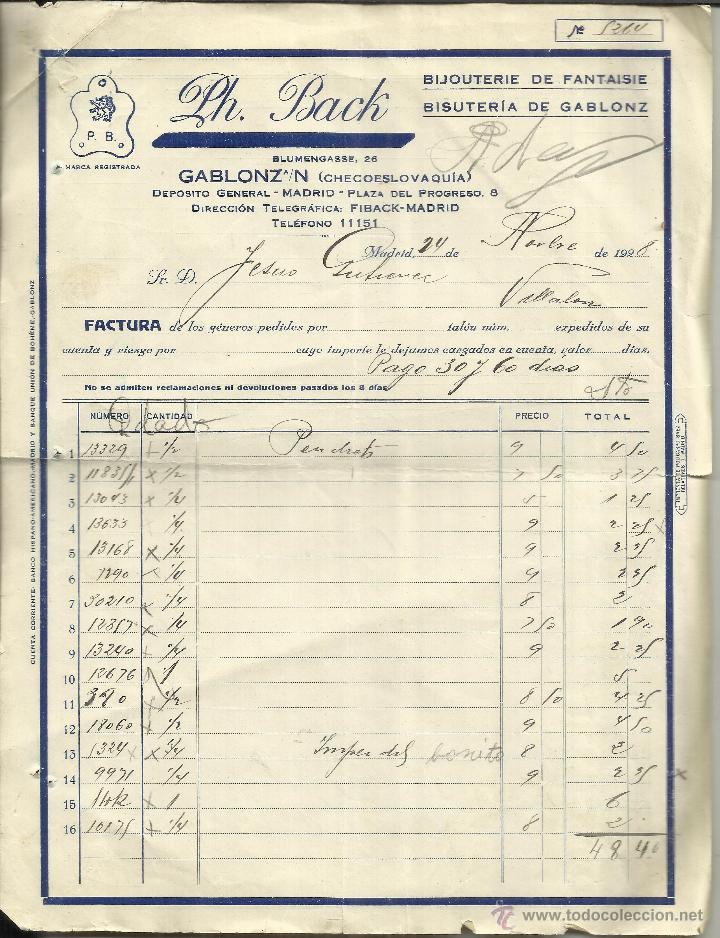 Nº 5214
Ph. Back
BIJOUTERIE DE FANTAISIE
BISUTERÍA DE GABLONZ
P. B.
MARCA REGISTRADA
BLUMENGASSE, 26
GABLONZ A/N (CHECOESLOVAQUÍA)
DEPÓSITO GENERAL - MADRID - PLAZA DEL PROGRESO, 8
DIRECCIÓN TELEGRÁFICA: FIBACK-MADRID
TELÉFONO 11151
Madrid, 24 de Novbre de 1928
Sr. D. Jesus Gutierrez
Villalon
FACTURA de los géneros pedidos por talón núm. expedidos de su
cuenta y riesgo por cuyo importe le dejamos cargados en cuenta, valor días.
Pago 30 y 60 dias
No se admiten reclamaciones ni devoluciones pasados los 8 días
NÚMERO CANTIDAD PRECIO TOTAL
1 13329 1/2 9 4 50
2 1/2 7 50 3 75
3 13043 1/4 5 1 25
4 13633 1/4 9 2 25
5 13168 x 1/4 9 2 25
6 1290 1/4 9 2 25
7 30210 x 1/4 8 2
8 12357 x 1/4 7 50 1 90
9 13240 1/4 9 2 25
10 12676 1 5
11 390 x 1/2 8 50 4 25
12 18060 x 1/2 9 4 50
13 1324 x x 1/4 bonito 8 2
14 9971 x 1/4 9 2 25 x
15 x 1 6
16 10175 1/4 8 2
48 40
CUENTA CORRIENTE: BANCO HISPANO-AMERICANO.-MADRID Y BANQUE UNION DE BOHÊME.-GABLONZ
www.todocoleccion.net